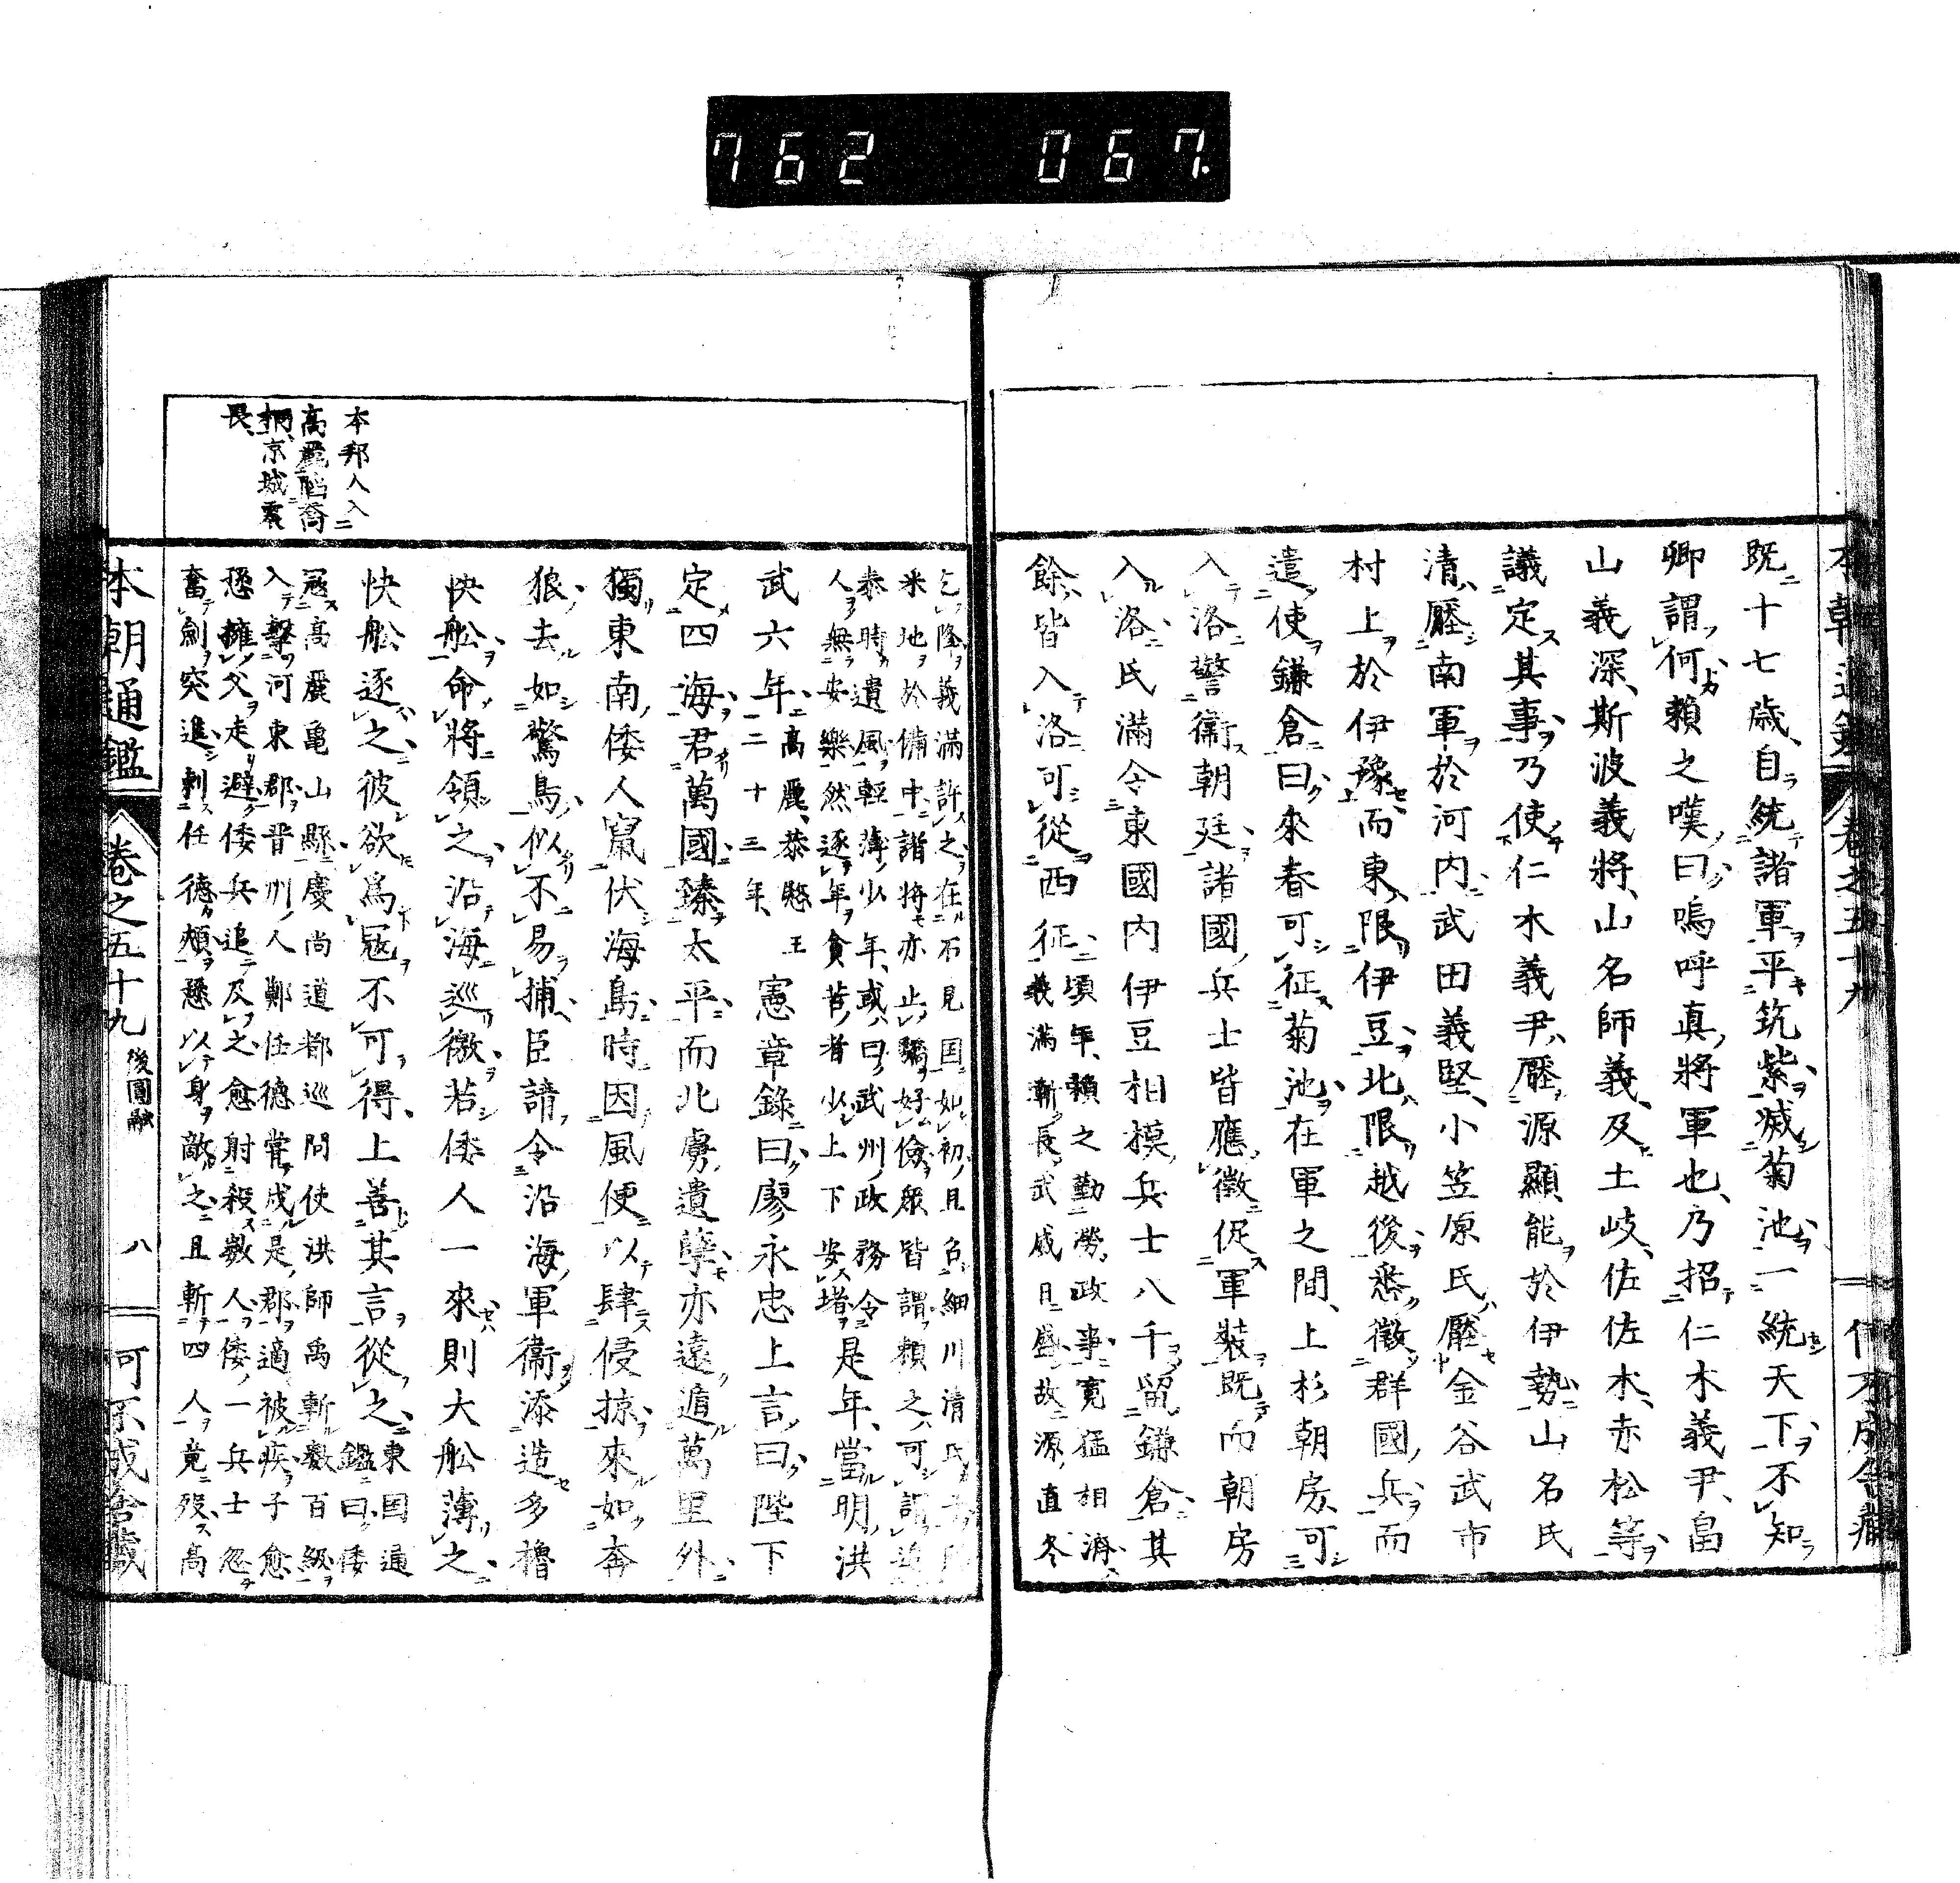 762 067.
既十七歳、自統諸軍平筑紫滅菊池一統天下不知
卿謂何頼之嘆曰嗚呼真將軍也、乃招仁木義尹、畠
山義深、斯波義將、山名師義、及土岐、佐佐木、赤松等
議定其事乃使仁木義尹壓源顯能於伊勢山名氏
清壓南軍於河内武田義堅、小笠原氏壓金谷武市
村上於伊豫而東限伊豆北限越後悉徴群國兵而
遣使鎌倉曰來春可征菊池在軍之間、上杉朝房可
入洛警衞朝廷諸國兵士皆應徴促軍裝既而朝房
入洛氏滿令東國内伊豆相模兵士八千留鎌倉其
餘皆入洛可從西征
頃年、頼之勤勞政事寛猛相濟
義滿漸長武威日盛故源直冬
乞降義滿許之在石見国如初且
米地於備中諸將亦止驕好儉衆皆謂頼之可謂
泰時遺風輕薄少年、或曰武州政務令
人無安樂然逐年貪昔者少上下安堵
是年、當明洪
武六年
高麗、恭愍王
二十三年、
憲章錄曰廖永忠上言曰陛下
定四海君萬國臻太平而北虜遺孽亦遠遁萬里外
獨東南倭人竄伏海島時因風便以肆侵掠來如奔
狼去如驚鳥似不易捕臣請令沿海軍衞添造多櫓
快舩命將領之沿海巡徼若倭人一來則大舩薄之
快舩逐之彼欲爲冦不可得上善其言從之
東国通
鑑曰倭
冦高麗亀山縣慶尚道都巡問使洪師禹斬數百級
入撃河東郡晋州人鄭任德嘗戍是郡適被疾子愈
愻擁父走避倭兵追及之愈射殺數人倭一兵士忽
奮劍突進刺任德頰愻以身敵之且斬四人竟歿高
本邦人入
高麗陷喬
桐京城震
畏
本朝通鑑 卷之五十九 後圓融 八 可不成舎藏